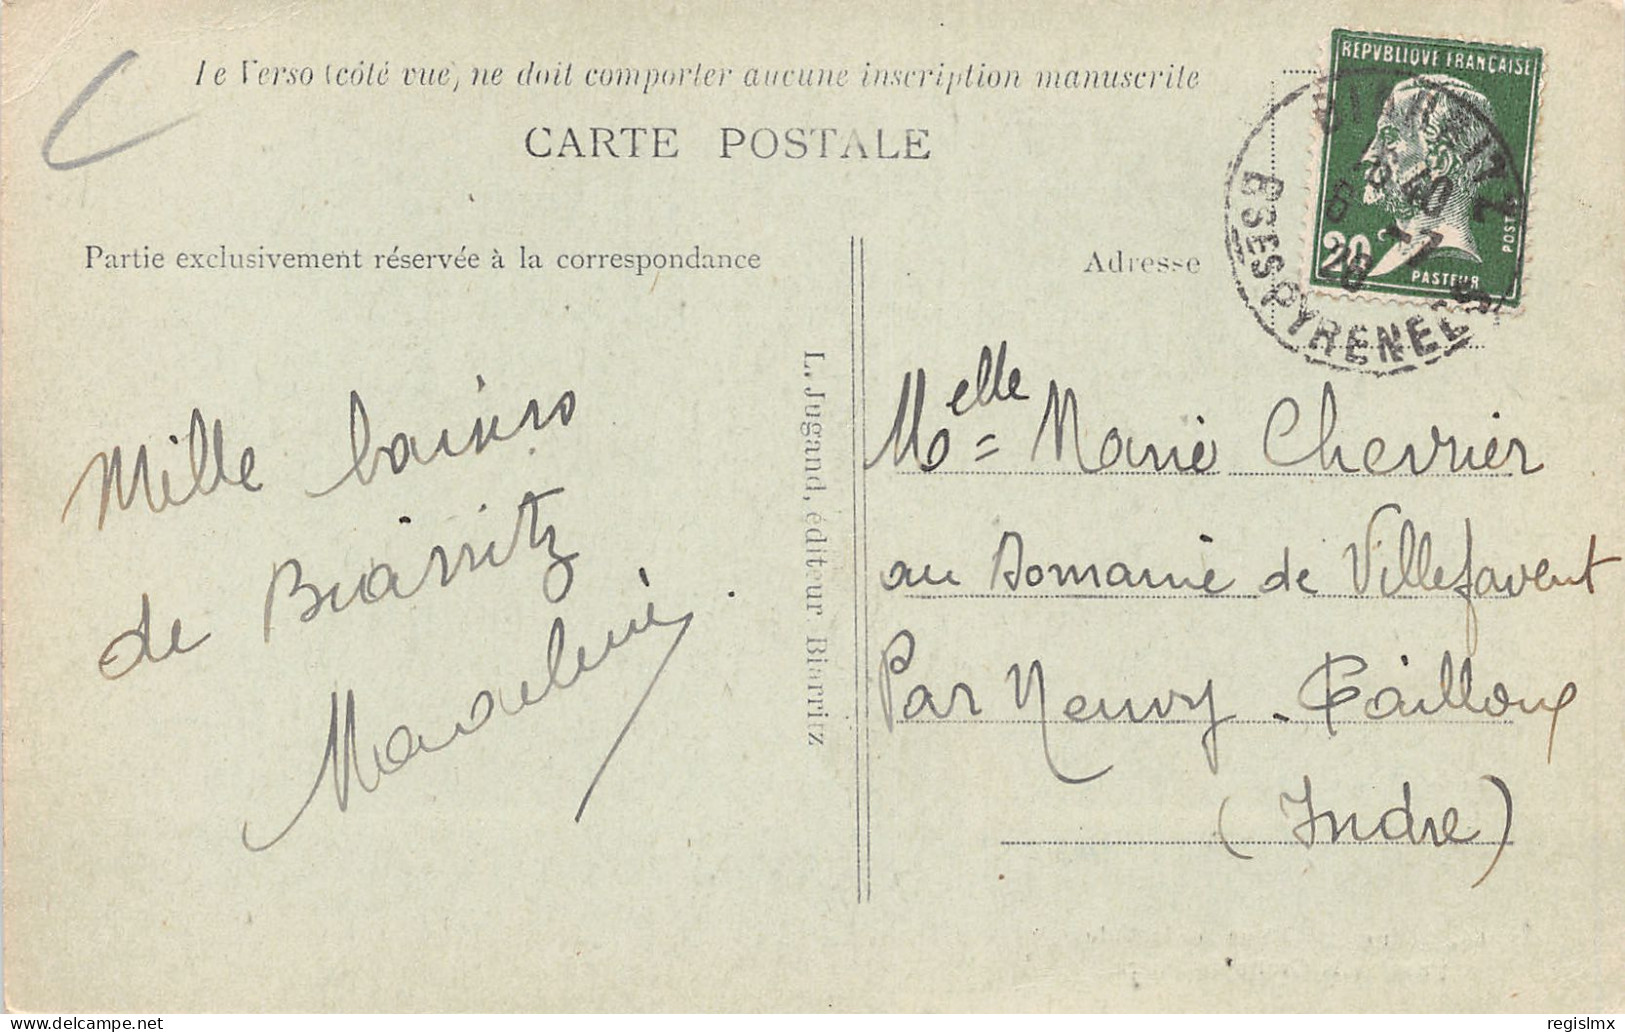 Le Verso (côté vue) ne doit comporter aucune inscription manuscrite
CARTE POSTALE
Partie exclusivement réservée à la correspondance
Adresse
REPVBLIQVE FRANÇAISE
POSTES
20
PASTEUR
BIARRITZ
6 -7
26
BSES PYRENEES
Mille baisers
de Biarritz
L. Jugand, éditeur Biarritz
Melle Marie Chevrier
au Domaine de Villefavent
Par Neuvy-Pailloux
(Indre)
delcampe.net
regislmx